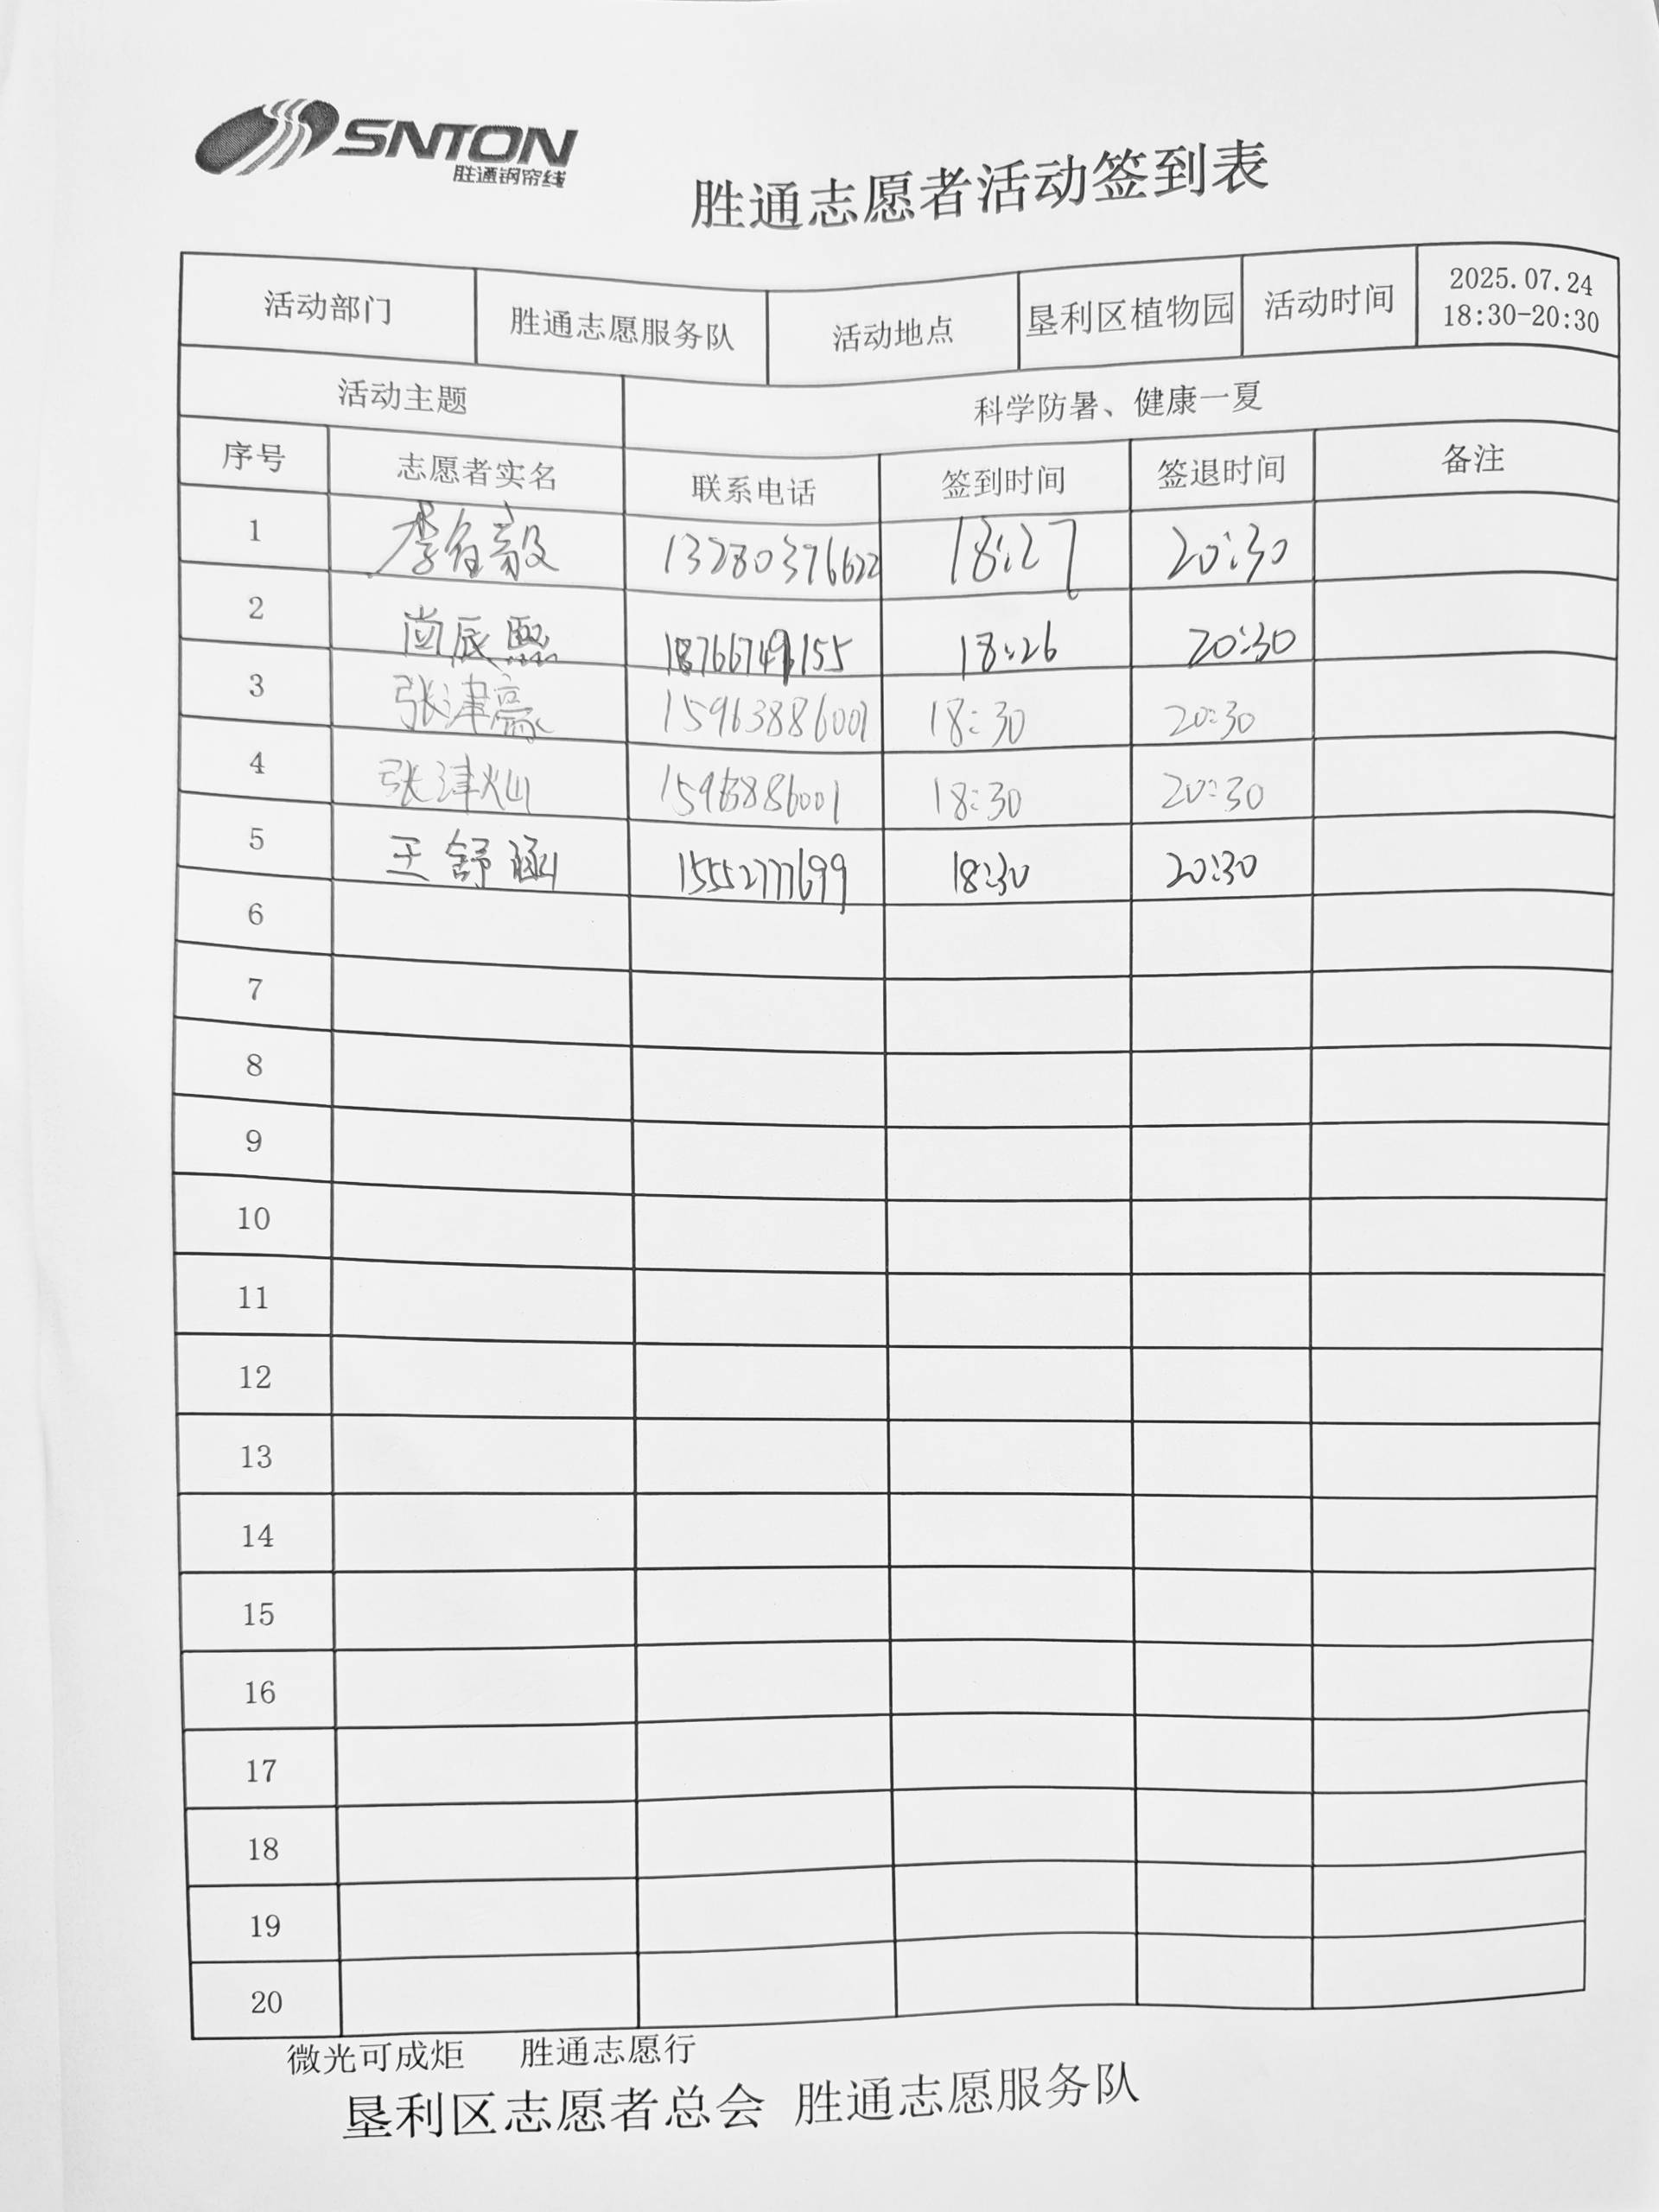 SNTON
胜通钢帘线
胜通志愿者活动签到表
活动部门 胜通志愿服务队 活动地点 垦利区植物园 活动时间 2025.07.24 18:30-20:30
活动主题 科学防暑、健康一夏
序号 志愿者实名 联系电话 签到时间 签退时间 备注
1 李 毅 13280376622 18:27 20:30
2 尚辰熙 18:26 20:30
3 张津 15963886001 18:30 20:30
4 张津灿 15963886001 18:30 20:30
5 王舒涵 15552777699 18:30 20:30
6
7
8
9
10
11
12
13
14
15
16
17
18
19
20
微光可成炬 胜通志愿行
垦利区志愿者总会 胜通志愿服务队